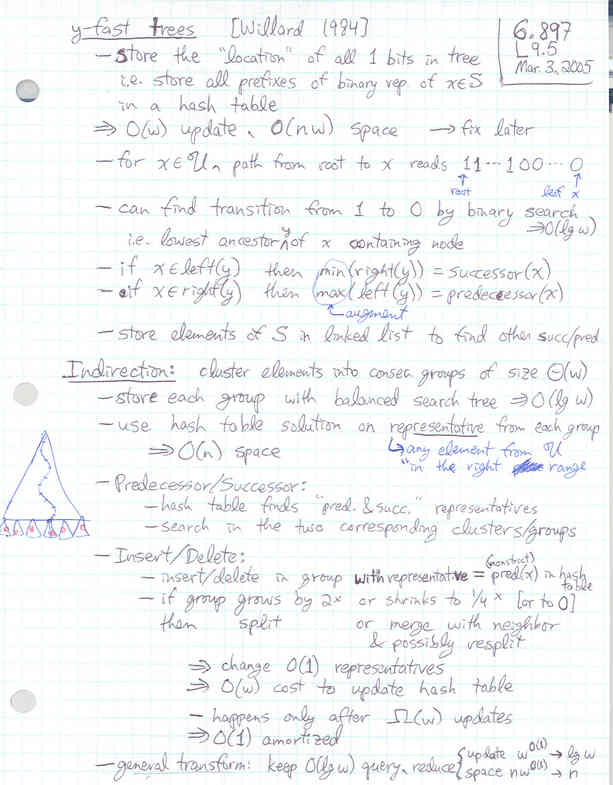 y-fast trees [Willard 1984]
6.897
L9.5
Mar. 3, 2005
– store the "location" of all 1 bits in tree
i.e. store all prefixes of binary rep. of x∈S
in a hash table
⇒ O(w) update, O(nw) space → fix later
– for x∈U, path from root to x reads 11···100···0
root leaf x
– can find transition from 1 to 0 by binary search
⇒O(lg w)
i.e. lowest ancestor y of x containing node
– if x∈left(y) then min(right(y)) = successor(x)
– if x∈right(y) then max(left(y)) = predecessor(x)
augment
– store elements of S in linked list to find other succ/pred
Indirection: cluster elements into consec. groups of size Θ(w)
– store each group with balanced search tree ⇒ O(lg w)
– use hash table solution on representative from each group
⇒ O(n) space
↳ any element from U
"in the right range
– Predecessor/Successor:
– hash table finds "pred. & succ." representatives
– search in the two corresponding clusters/groups
– Insert/Delete:
– insert/delete in group with representative = (nonstrict) pred(x) in hash table
– if group grows by 2× or shrinks to 1/4 × [or to 0]
then split or merge with neighbor
& possibly resplit
⇒ change O(1) representatives
⇒ O(w) cost to update hash table
– happens only after Ω(w) updates
⇒ O(1) amortized
– general transform: keep O(lg w) query, reduce { update w^O(1) → lg w
space nw^O(1) → n